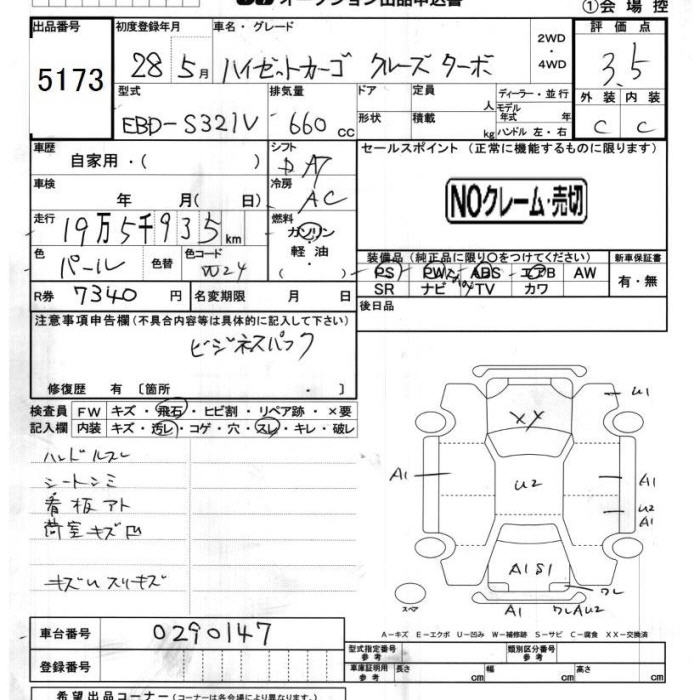 オークション出品申込書
①会場控
出品番号 初度登録年月 車名・グレード 2WD・4WD 評価点
5173 28年5月 ハイゼットカーゴ クルーズターボ 3.5
型式 排気量 ドア 定員 人 ディーラー・並行 外装 内装
EBD-S321V 660cc 形状 積載 kg モデル年式 年 ハンドル 左・右 C C
車歴 自家用・( ) シフト DA7 セールスポイント (正常に機能するものに限ります)
車検 年 月(日) 冷房 AC
NOクレーム・売切
走行 19万5千935km 燃料 ガソリン・軽油・( )
色 パール 色替 色コード W24
装備品 (純正品に限り○をつけてください) 新車保証書
PS PW ABS エアB AW 有・無
SR ナビ TV カワ
R券 7340円 名変期限 月 日 後日品
注意事項申告欄 (不具合内容等は具体的に記入して下さい)
ビジネスパック
修復歴 有 [箇所 ・ ]
検査員記入欄 FW キズ・飛石・ヒビ割・リペア跡・×要
内装 キズ・汚レ・コゲ・穴・スレ・キレ・破レ
ハンドルスレ
シートシミ
看板アト
荷室キズ凹
キズUスリキズ
U1
XY
A1 U2 A1
U2
A1
A1 S1
ワレ
スペア A1 ワレAU2
A-キズ E-エクボ U-凹み W-補修跡 S-サビ C-腐食 XX-交換済
車台番号 0290147
登録番号
型式指定番号 参考 類別区分番号 参考
車庫証明用 参考 長さ cm 幅 cm 高さ cm
希望出品コーナー (コーナーは各会場により異なります)